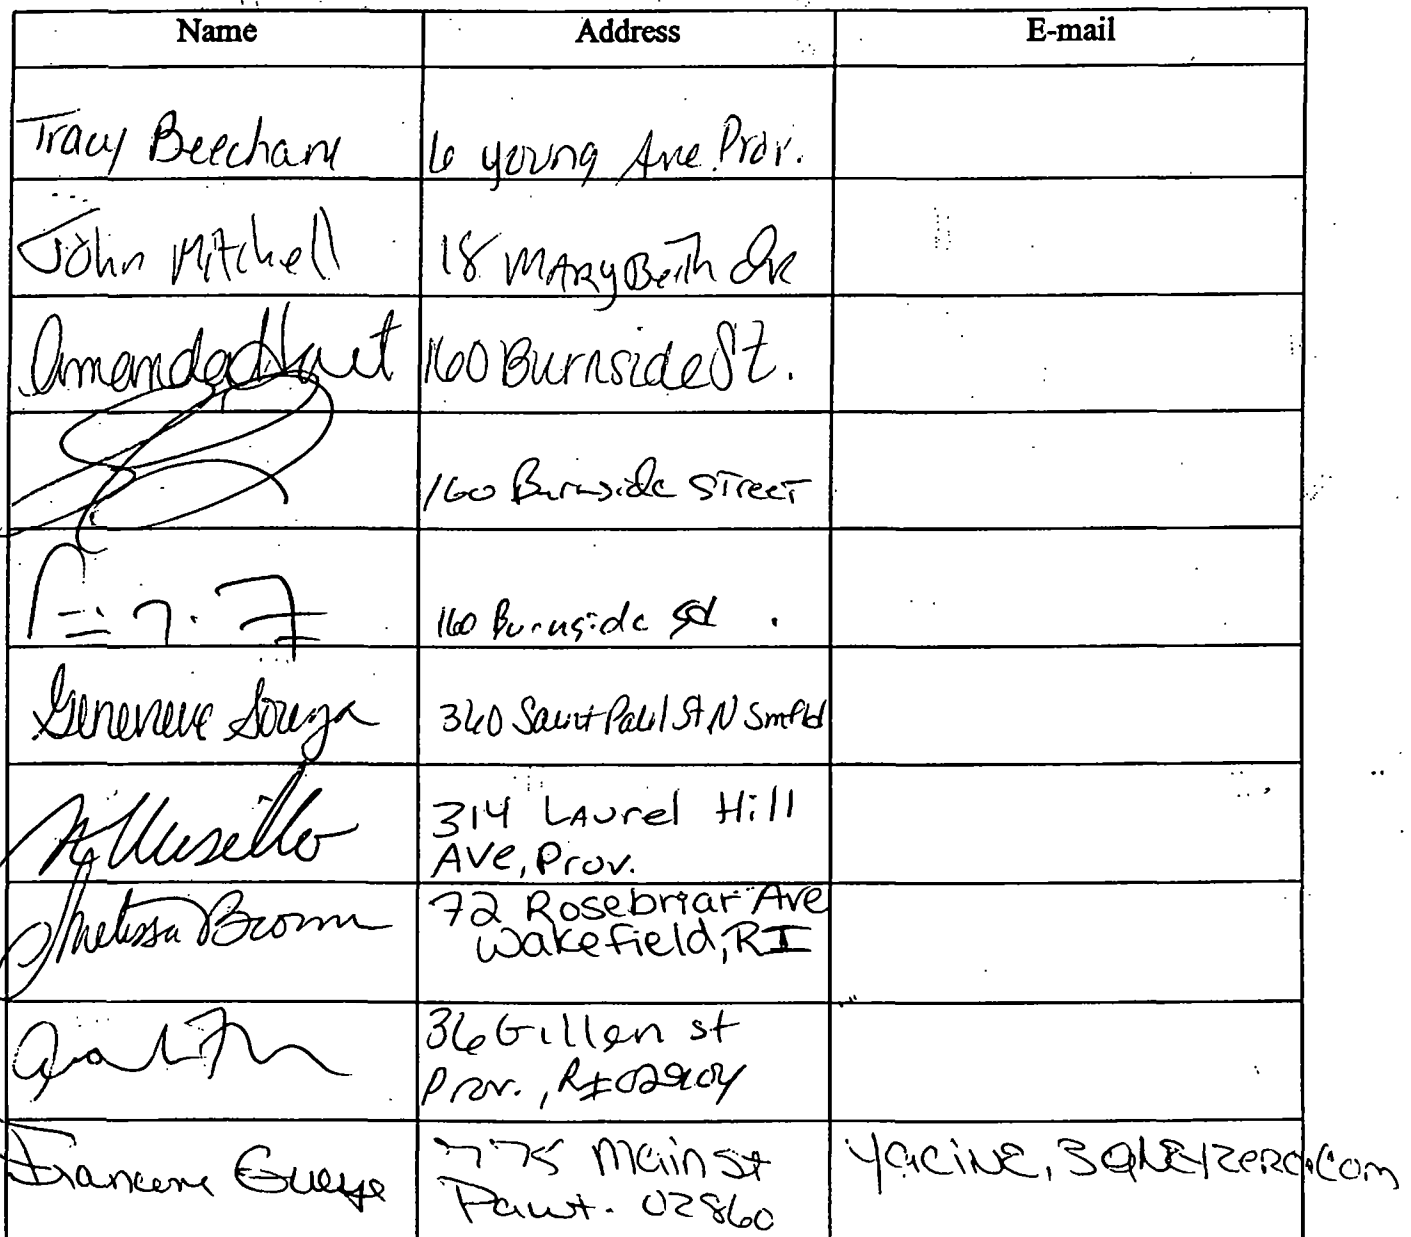 Name Address E-mail
Tracy Beecham 6 young Ave. Prov.
John Mitchell 18 MARY Beith DR
Amanda 160 Burnside St.
160 Burnside STreeT
160 Burnside
Genevieve Souza 360 Saint Paul St N Smfld
314 LAurel Hill
AVe, Prov.
Melissa Brown 72 Rosebriar Ave
Wakefield, RI
36 Gillen st
Prov., RI 02904
Francene Gueye 775 Main st
Pawt. 02860